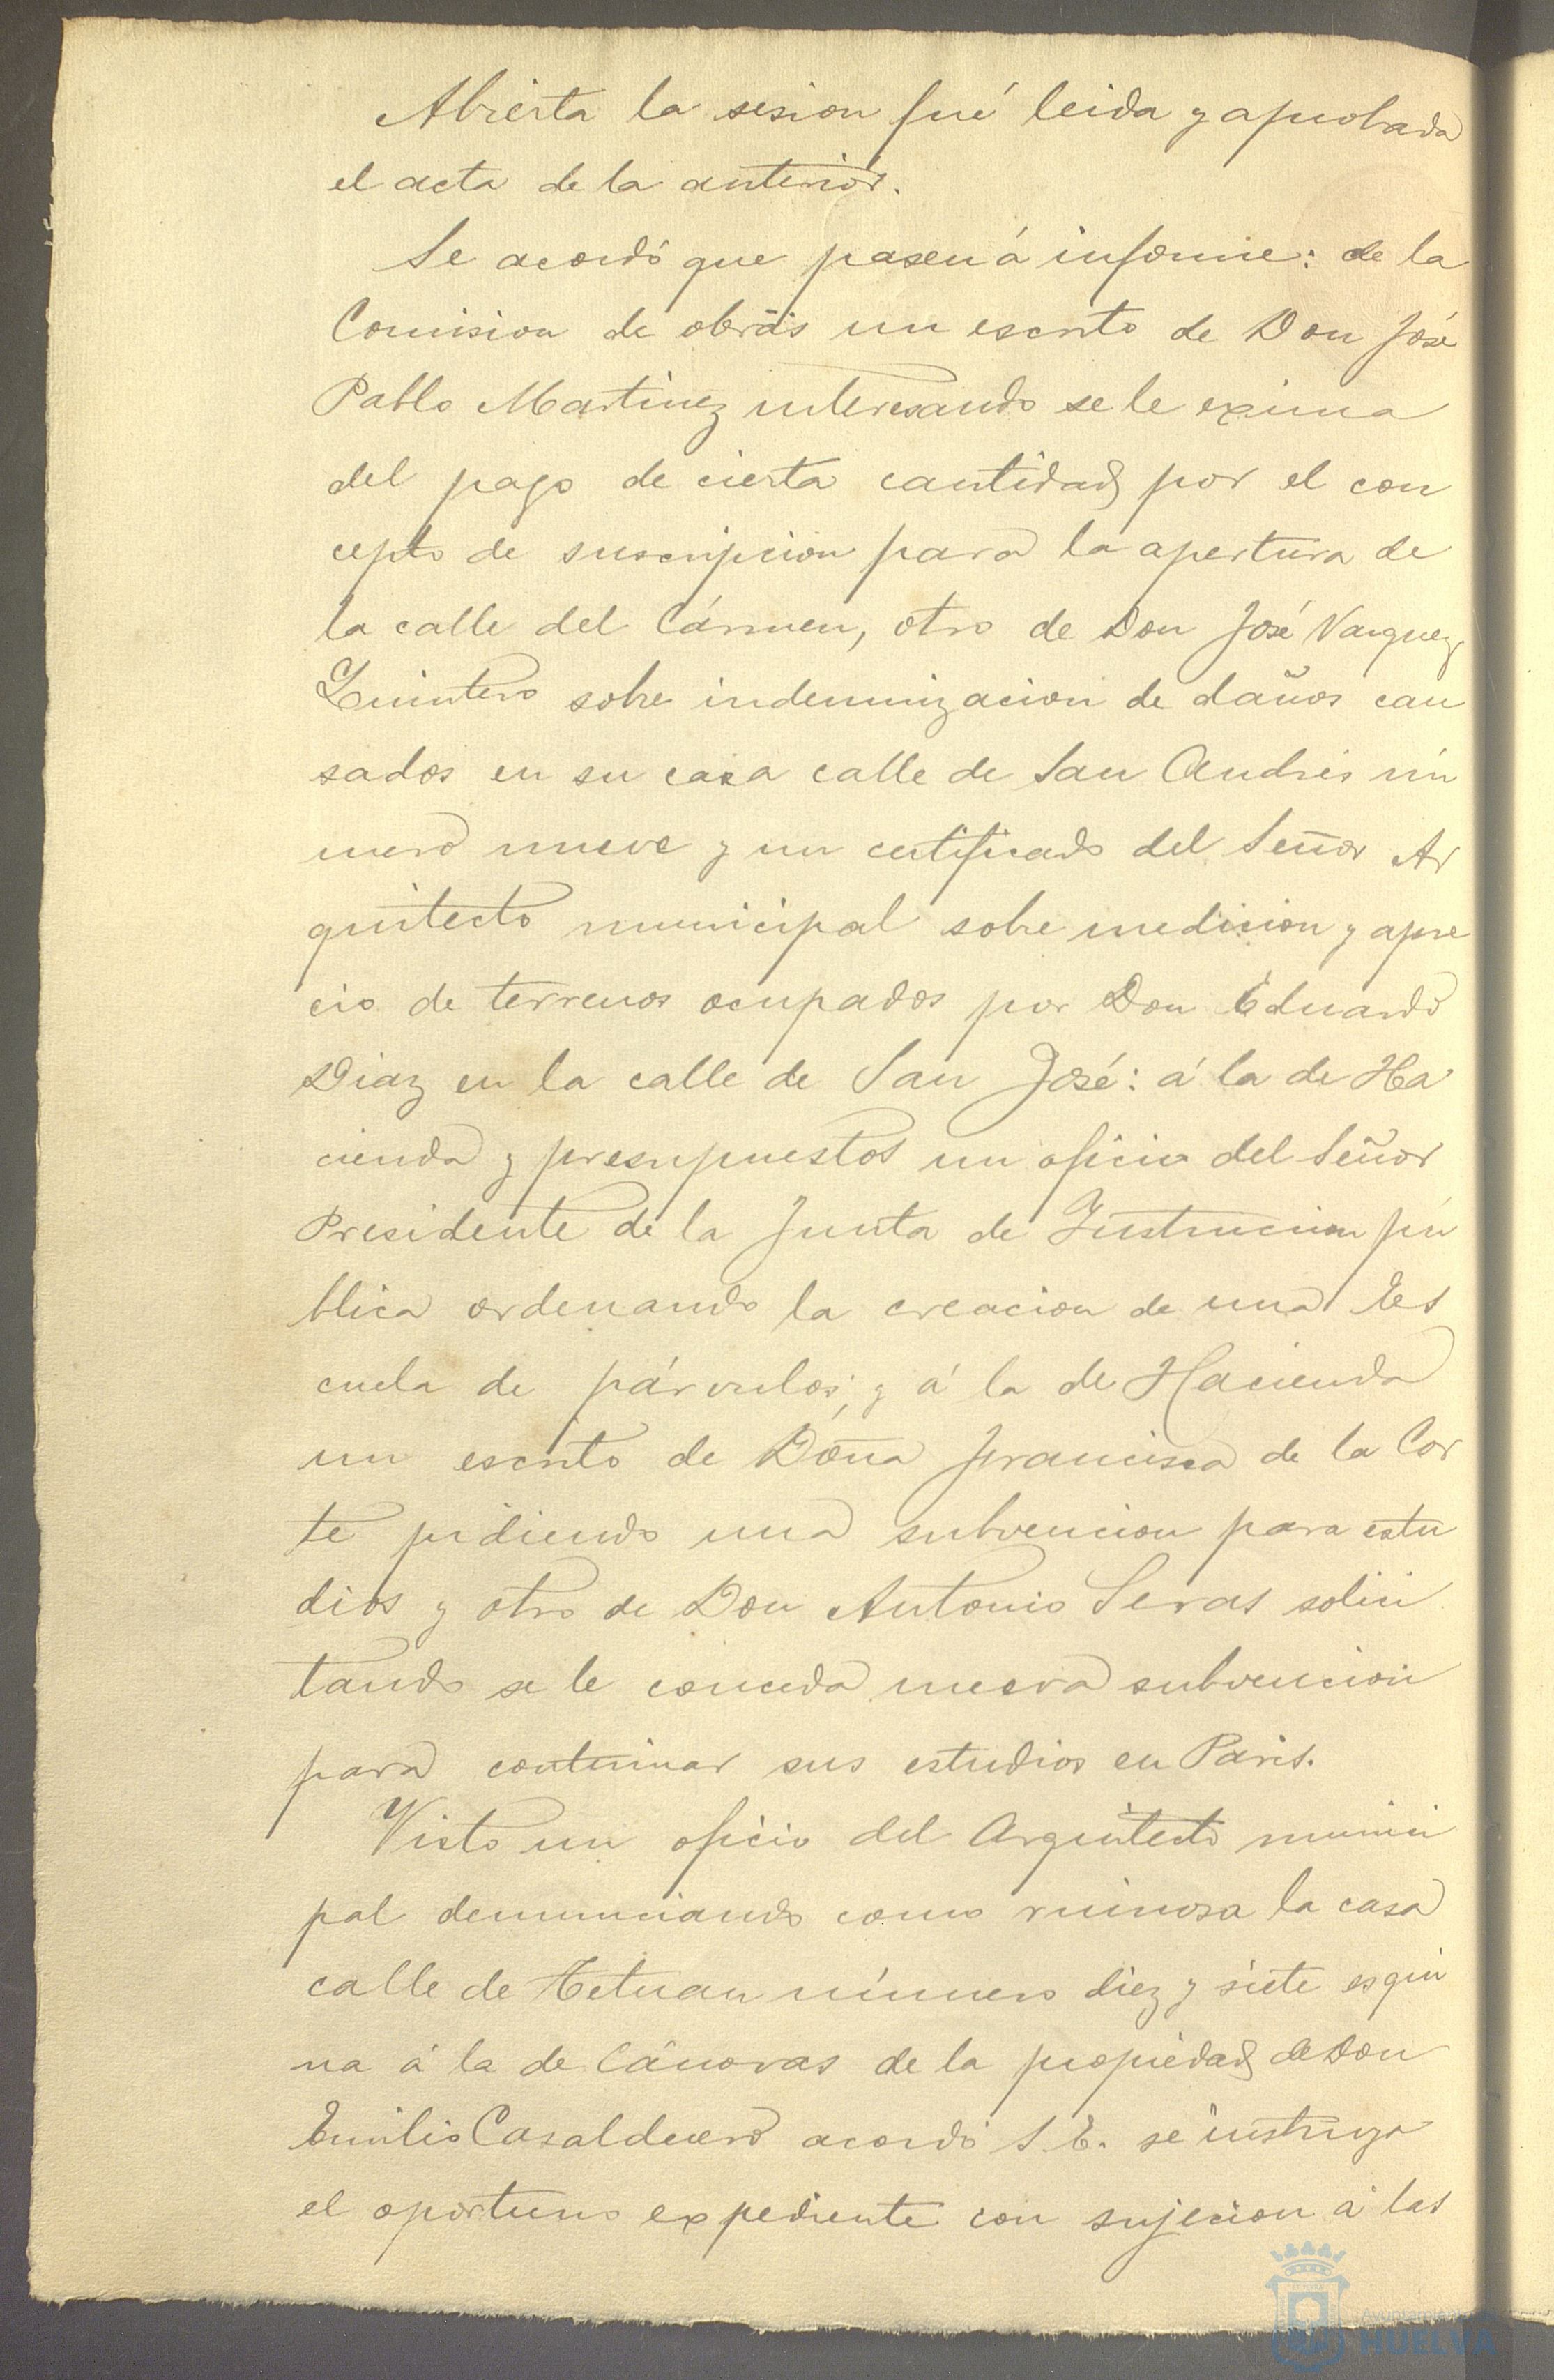 Abierta la sesion fué leida y aprobada
el acta de la anterior.
Se acordó que pasen á informe: de la
Comision de obras un escrito de Don José
Pablo Martinez interesando se le exima
del pago de cierta cantidad por el con
cepto de suscripcion para la apertura de
la calle del Cármen, otro de Don José Vazquez
Quintero sobre indemnizacion de daños cau
sados en su casa calle de San Andrés nú
mero nueve y un certificado del Señor Ar
quitecto municipal sobre medicion y apre
cio de terrenos ocupados por Don Eduardo
Diaz en la calle de San José: á la de Ha
cienda y presupuestos un oficio del Señor
Presidente de la Junta de Instruccion pú
blica ordenando la creacion de una Es
cuela de párvulos; y á la de Hacienda
un escrito de Doña Francisca de la Cor
te pidiendo una subvencion para estu
dios y otro de Don Antonio Seras solici
tando se le conceda nueva subvencion
para continuar sus estudios en Paris.
Visto un oficio del Arquitecto munici
pal denunciando como ruinosa la casa
calle de Tetuan número diez y siete esqui
na á la de Cánovas de la propiedad de Don
Emilio Casalduero acordó S. E. se instruya
el oportuno expediente con sujecion á las
Ayuntamiento
HUELVA